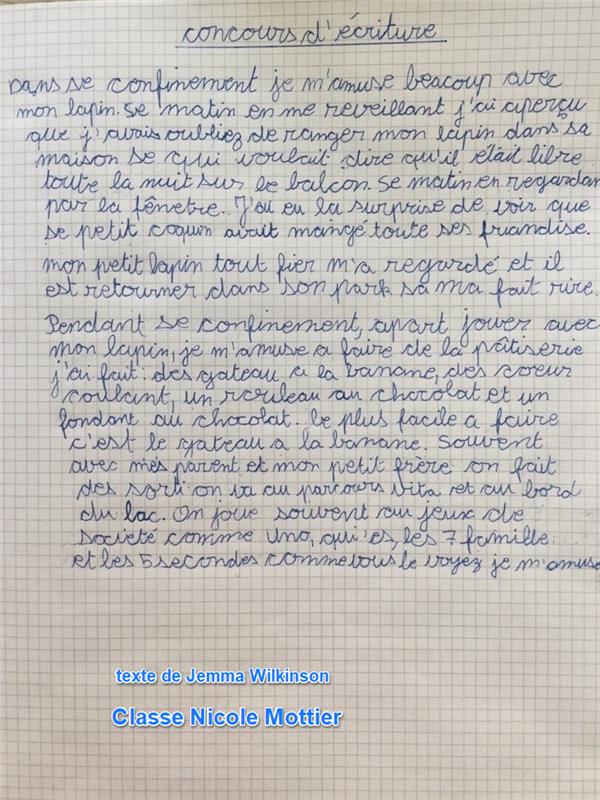 concours d'écriture
Dans se confinement je m'amuse beacoup avec
mon lapin. Se matin en me reveillant j'ai aperçu
que j'avais oubliez de ranger mon lapin dans sa
maison se qui voulait dire qu'il était libre
toute la nuit sur le balcon. Se matin en regardan
par la fênetre. J'ai eu la surprise de voir que
se petit coquin avait mangé toute ses friandise.
mon petit lapin tout fier m'a regardé et il
est retourner dans son park sa ma fait rire.
Pendant se confinement, apart jouer avec
mon lapin, je m'amuse a faire de la pâtiserie
j'ai fait: des gateau a la banane, des coeur
coulant, un rouleau au chocolat et un
fondant au chocolat. Le plus facile a faire
c'est le gateau a la banane. Souvent
avec mes parent et mon petit frère on fait
des sorti on va au parcours vita et au bord
du lac. On joue souvent au jeux de
societé comme Uno, qui'es, les 7 famille
et les 5 secondes comme vous le voyez je m'amuse
texte de Jemma Wilkinson
Classe Nicole Mottier